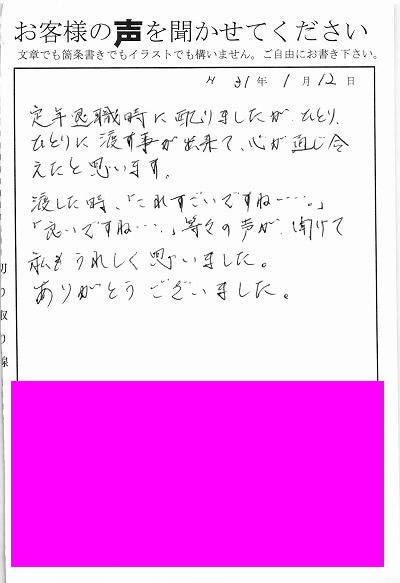 お客様の声を聞かせてください
文章でも箇条書きでもイラストでも構いません。ご自由にお書き下さい。
H 31年 1月 12日
定年退職時に配りましたが、ひとり、
ひとりに渡す事が出来て、心が通じ合
えたと思います。
渡した時、「これすごいですね……。」
「良いですね……」等々の声が聞けて
私もうれしく思いました。
ありがとうございました。
切り取り線